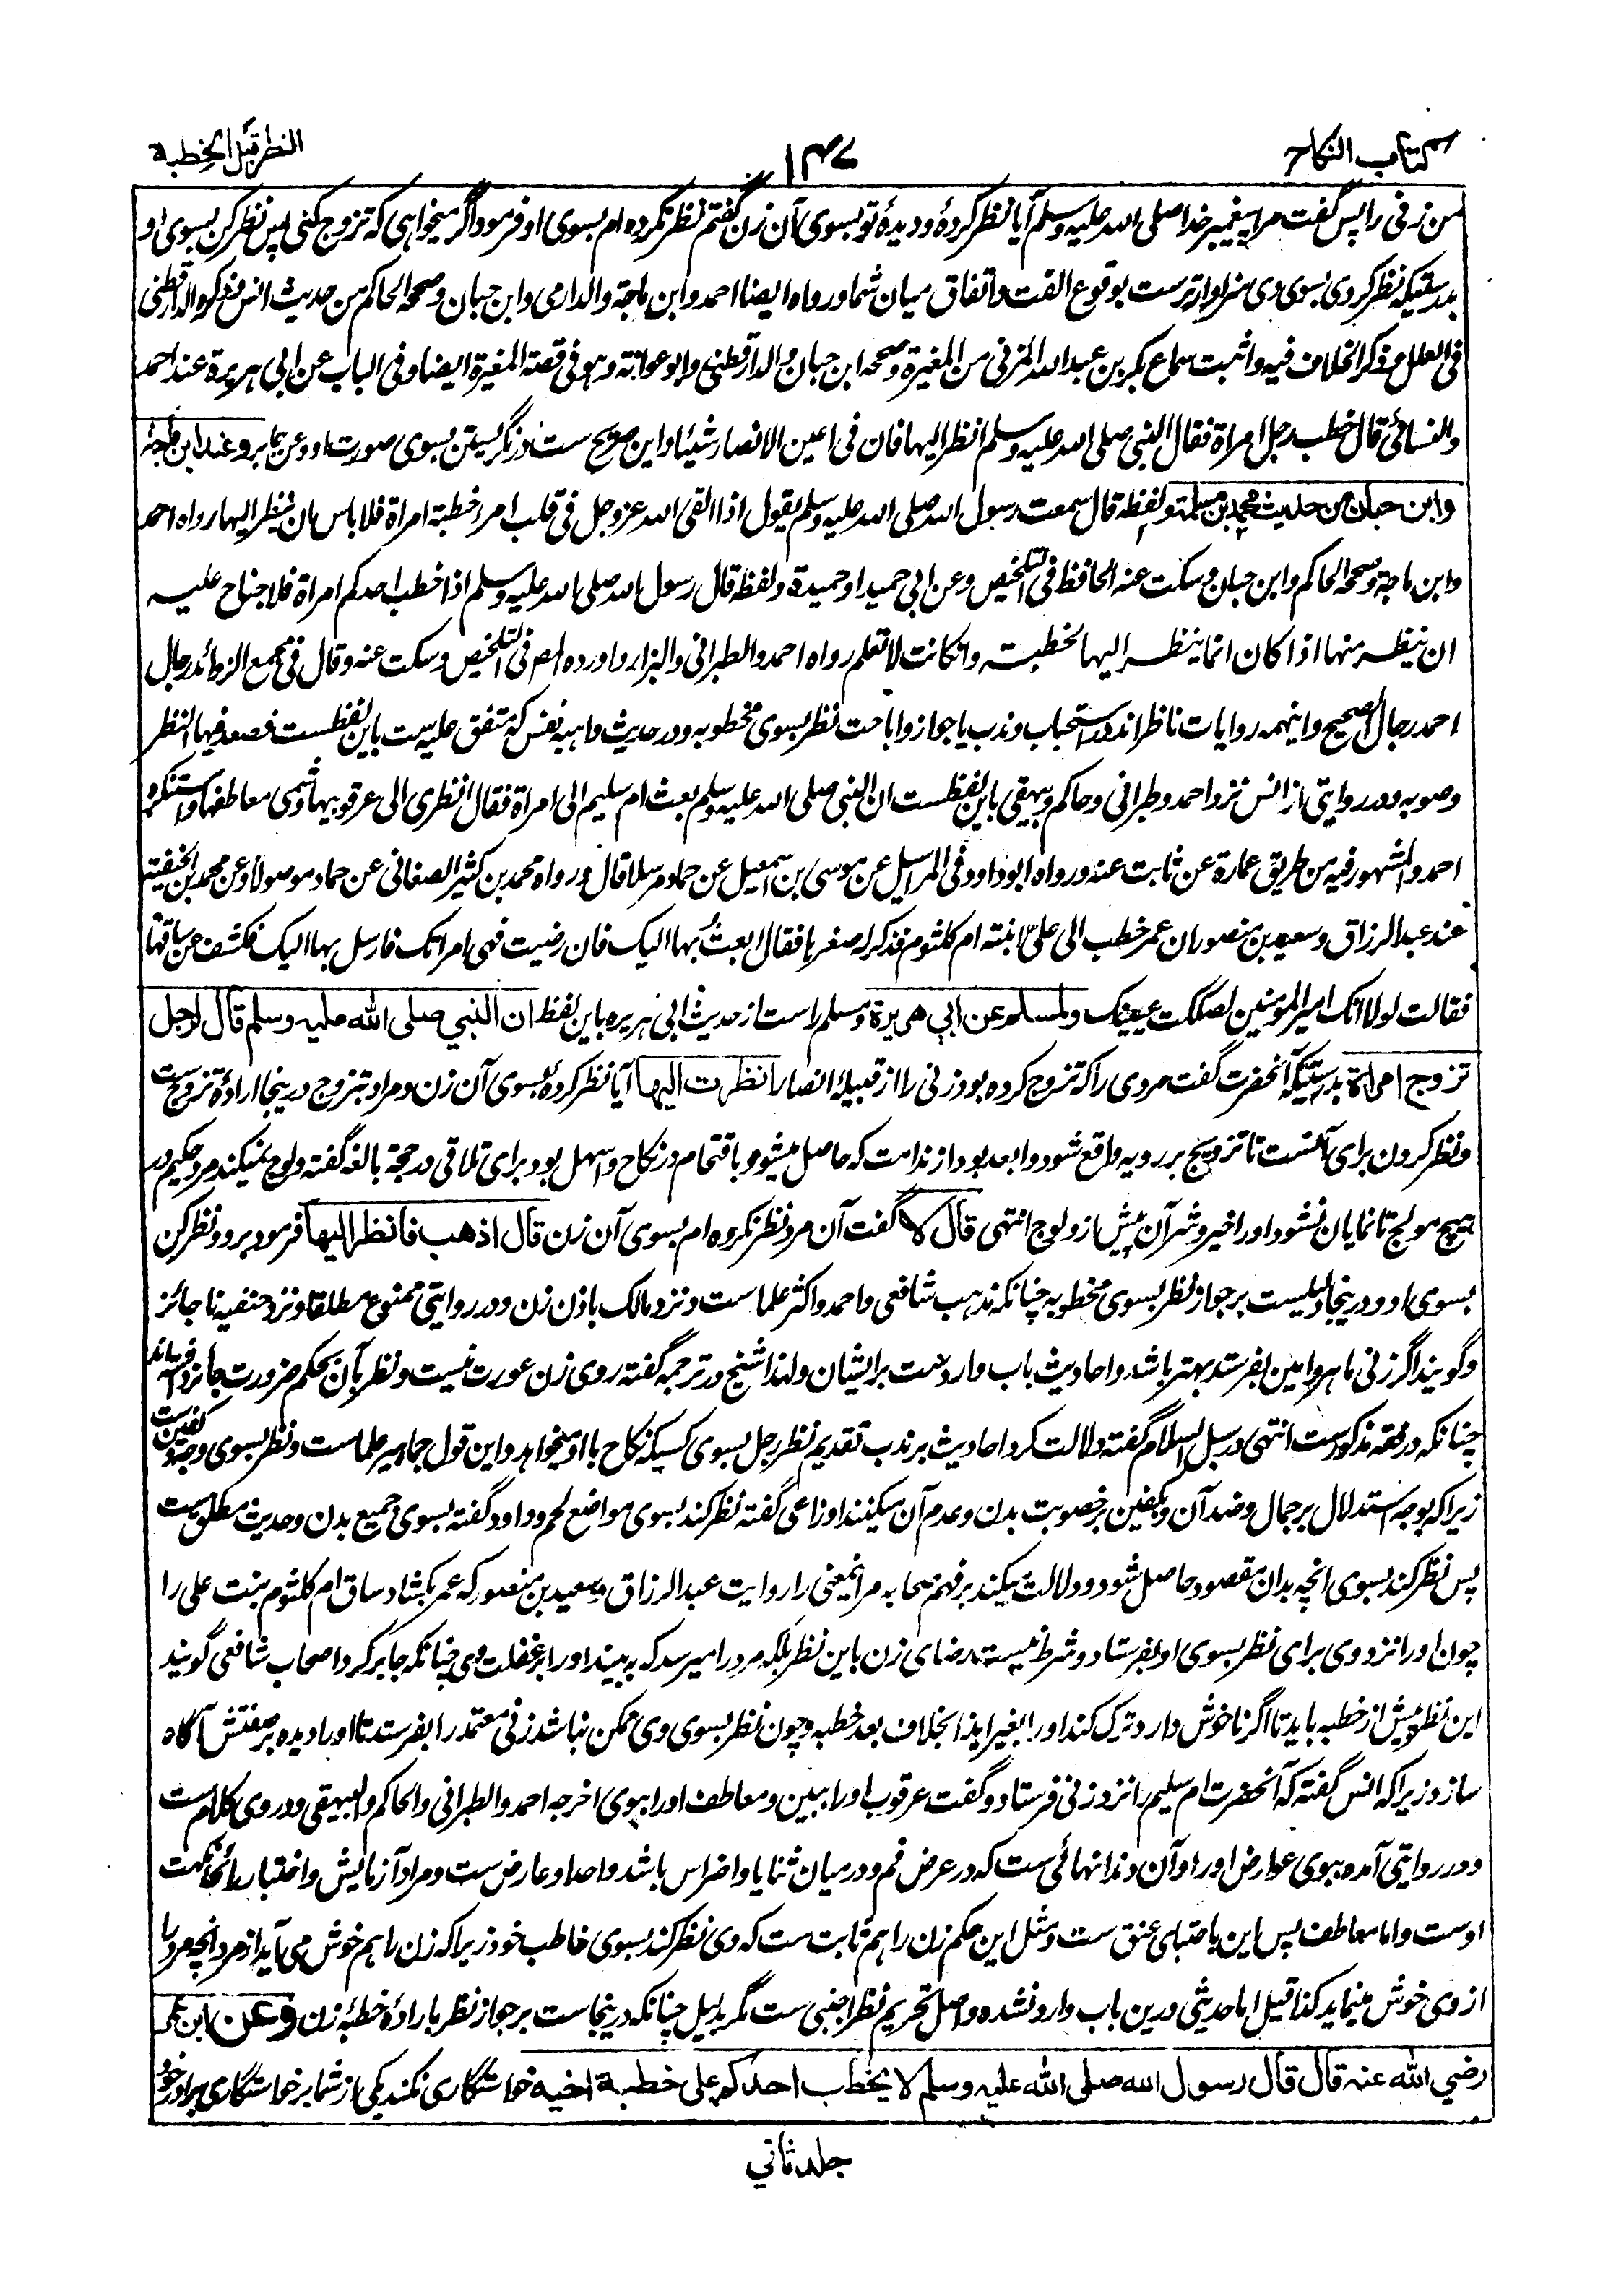 كتاب النكاح
١٤٧
النظر قبل الخطبة
من زنی را پس گفت مرا پیغمبر خدا صلی الله علیه وسلم آیا نظر کردۀ و دیدۀ تو بسوی آن زن گفتم نظر نکرده ام بسوی او فرمود اگر میخواهی که تزوج کنی پس نظر کن بسوی او
بدرستیکه نظر کردی بسوی وی سزاوارتر ست بوقوع الفت و اتفاق میان شما و رواه ایضا احمد وابن ماجة والدارمی وابن حبان وصححه الحاکم من حدیث انس وذکره الدارقطنی
فی العلل وذکر الخلاف فیه واثبت سماع بکر بن عبد الله المزنی من المغیرة وصححه ابن حبان والدارقطنی وابو عوانة وهو فی قصة المغیرة ایضا وفی الباب عن ابی هریرة عند احمد
والنسائی قال خطب رجل امرأة فقال النبی صلی الله علیه وسلم انظر الیها فان فی اعین الانصار شیئا و این صریح ست در نگریستن بسوی صورت او وعن جابر وعند ابن ماجة
وابن حبان من حديث محمد بن مسلمة ولفظه قال سمعت رسول الله صلی الله علیه وسلم یقول اذا القی الله عز وجل فی قلب امرء خطبة امرأة فلا باس ان ینظر الیها رواه احمد
وابن ماجة وصححه الحاکم وابن حبان وسکت عنه الحافظ فی التلخیص وعن ابی حمید او حمیدة ولفظه قال رسول الله صلی الله علیه وسلم اذا خطب احدکم امرأة فلا جناح علیه
ان ینظر منها اذا کان انما ینظر الیها لخطبته وان کانت لا تعلم رواه احمد والطبرانی والبزار واورده المص فی التلخیص وسکت عنه وقال فی مجمع الزوائد رجال
احمد رجال الصحیح و اینهمه روایات ناظر اند در استحباب و ندب یا جواز و اباحت نظر بسوی مخطوبه و در حدیث واهبه نفس که متفق علیه ست باین لفظست فصعد فیها النظر
وصوبه و در روایتی از انس نزد احمد و طبرانی و حاکم و بیهقی باین لفظست ان النبی صلی الله علیه وسلم بعث ام سلیم الی امرأة فقال انظری الی عرقوبیها وشمی معاطفها واستنکره
احمد والمشهور فیه من طریق عمارة عن ثابت عنه ورواه ابوداود فی المراسیل عن موسی بن اسمعیل عن حماد مرسلا قال ورواه محمد بن کثیر الصغانی عن حماد موصولا وعن محمد بن الحنفیة
عند عبد الرزاق وسعید بن منصور ان عمر خطب الی علی ابنته ام کلثوم فذکر له صغرها فقال ابعث بها الیک فان رضیت فهی امرأتک فارسل بها الیک فکشف عن ساقها
فقالت لولا انک امیر المؤمنین لصککت عینیک ولمسلم عن ابي هريرة و مسلم راست از حدیث ابی هریره باین لفظ ان النبي صلى الله عليه وسلم قال لرجل
تزوج امرأة بدرستیکه آنحضرت گفت مردی را که تزوج کرده بود زنی را از قبیلۀ انصار انظرت اليها آیا نظر کردۀ بسوی آن زن و مراد بتزوج درینجا ارادۀ تزوج ست
و نظر کردن برای آنست تا تزویج بر رویه واقع شود و ابعد بود از ندامت که حاصل میشود باقتحام در نکاح و اسهل بود برای تلاقی در حجة بالغه گفته ولوج نمیکند مرد حکیم در
هیچ مولج تا نمایان نشود او را خیر و شر آن پیش از ولوج انتهی قال لا گفت آن مرد نظر نکرده ام بسوی آن زن قال اذهب فانظر اليها فرمود برو و نظر کن
بسوی او و درینجا دلیلست بر جواز نظر بسوی مخطوبه چنانکه مذهب شافعی و احمد و اکثر علماست و نزد مالک باذن زن و در روایتی ممنوع مطلقا و نزد حنفیه نا جائز
و گویند اگر زنی ماهر و امین بفرستد بهتر باشد و احادیث باب وارد ست بر ایشان و لهذا شیخ در ترجمه گفته روی زن عورت نیست و نظر بآن بحکم ضرورت جائز داشته اند
چنانکه در فقه مذکورست انتهی در سبل السلام گفته دلالت کرد احادیث بر ندب تقدیم نظر رجل بسوی کسیکه نکاح با او میخواهد و این قول جماهیر علماست و نظر بسوی وجه و کفین ست
زیرا که بوجه استدلال بر جمال و ضد آن و بکفین بر خصوبت بدن و عدم آن میکنند اوزاعی گفته نظر کند بسوی مواضع لحم و داود گفته بسوی جمیع بدن و حدیث مطلق ست
پس نظر کند بسوی آنچه بدان مقصود حاصل شود و دلالت میکند بر فهم صحابه مر اینمعنی را روایت عبد الرزاق و سعید بن منصور که عمر بکشاد ساق ام کلثوم بنت علی را
چون او را نزد وی برای نظر بسوی او بفرستاد و شرط نیست رضای زن باین نظر بلکه مرد را میرسد که به بیند او را بر غفلت وی چنانکه جابر کرد اصحاب شافعی گویند
این نظر پیش از خطبه باید تا اگر ناخوش دارد ترک کند او را بغیر ایذا بخلاف بعد خطبه و چون نظر بسوی وی ممکن نباشد زنی معتمد را بفرستد تا او را دیده بر صفتش آگاه
سازد زیرا که انس گفته که آنحضرت ام سلیم را نزد زنی فرستاد و گفت عرقوب او را ببین و معاطف او را ببوی اخرجه احمد والطبرانی والحاکم والبیهقی و در وی کلام ست
و در روایتی آمده ببوی عوارض او را و آن دندانهائی ست که در عرض فم و در میان ثنایا و اضراس باشد واحد او عارض ست و مراد آزمایش و اختبار رائحۀ نکهت
اوست و اما معاطف پس این یا ختبای عنق ست و مثل این حکم زن را هم ثابت ست که وی نظر کند بسوی خاطب خود زیرا که زن را هم خوش می آید از مرد آنچه مرد را
از وی خوش مینماید کذا قیل اما حدیثی درین باب وارد نشده و اصل تحریم نظر اجنبی ست مگر بدلیل چنانکه درینجاست بر جواز نظر بارادۀ خطبۀ زن وعن ابن عمر
رضي الله عنه قال قال رسول الله صلى الله عليه وسلم لا يخطب احدكم على خطبة اخيه خواستگاری نکند یکی از شما بر خواستگاری برادر خود
جلد ثاني